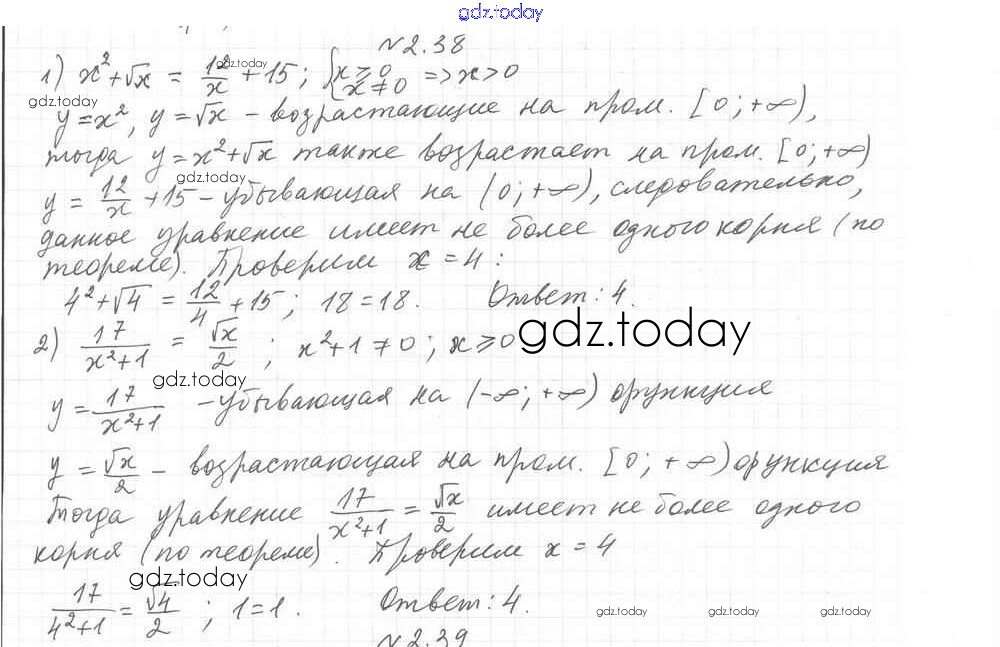 gdz.today
N2.38
1) x² + √x = 12/x + 15; {x ≥ 0 x ≠ 0 => x > 0
gdz.today
gdz.today
y = x², y = √x - возрастающие на пром. [0; +∞),
тогда y = x² + √x также возрастает на пром. [0; +∞)
gdz.today
y = 12/x + 15 - убывающая на (0; +∞), следовательно,
данное уравнение имеет не более одного корня (по
теореме). Проверим x = 4:
4² + √4 = 12/4 + 15; 18 = 18. Ответ: 4.
2) 17/(x²+1) = √x/2; x² + 1 ≠ 0; x ≥ 0
gdz.today
gdz.today
y = 17/(x²+1) - убывающая на (-∞; +∞) функция
y = √x/2 - возрастающая на пром. [0; +∞) функция
Тогда уравнение 17/(x²+1) = √x/2 имеет не более одного
корня (по теореме). Проверим x = 4
gdz.today
17/(4²+1) = √4/2; 1 = 1. Ответ: 4.
gdz.today gdz.today gdz.today
N2.39